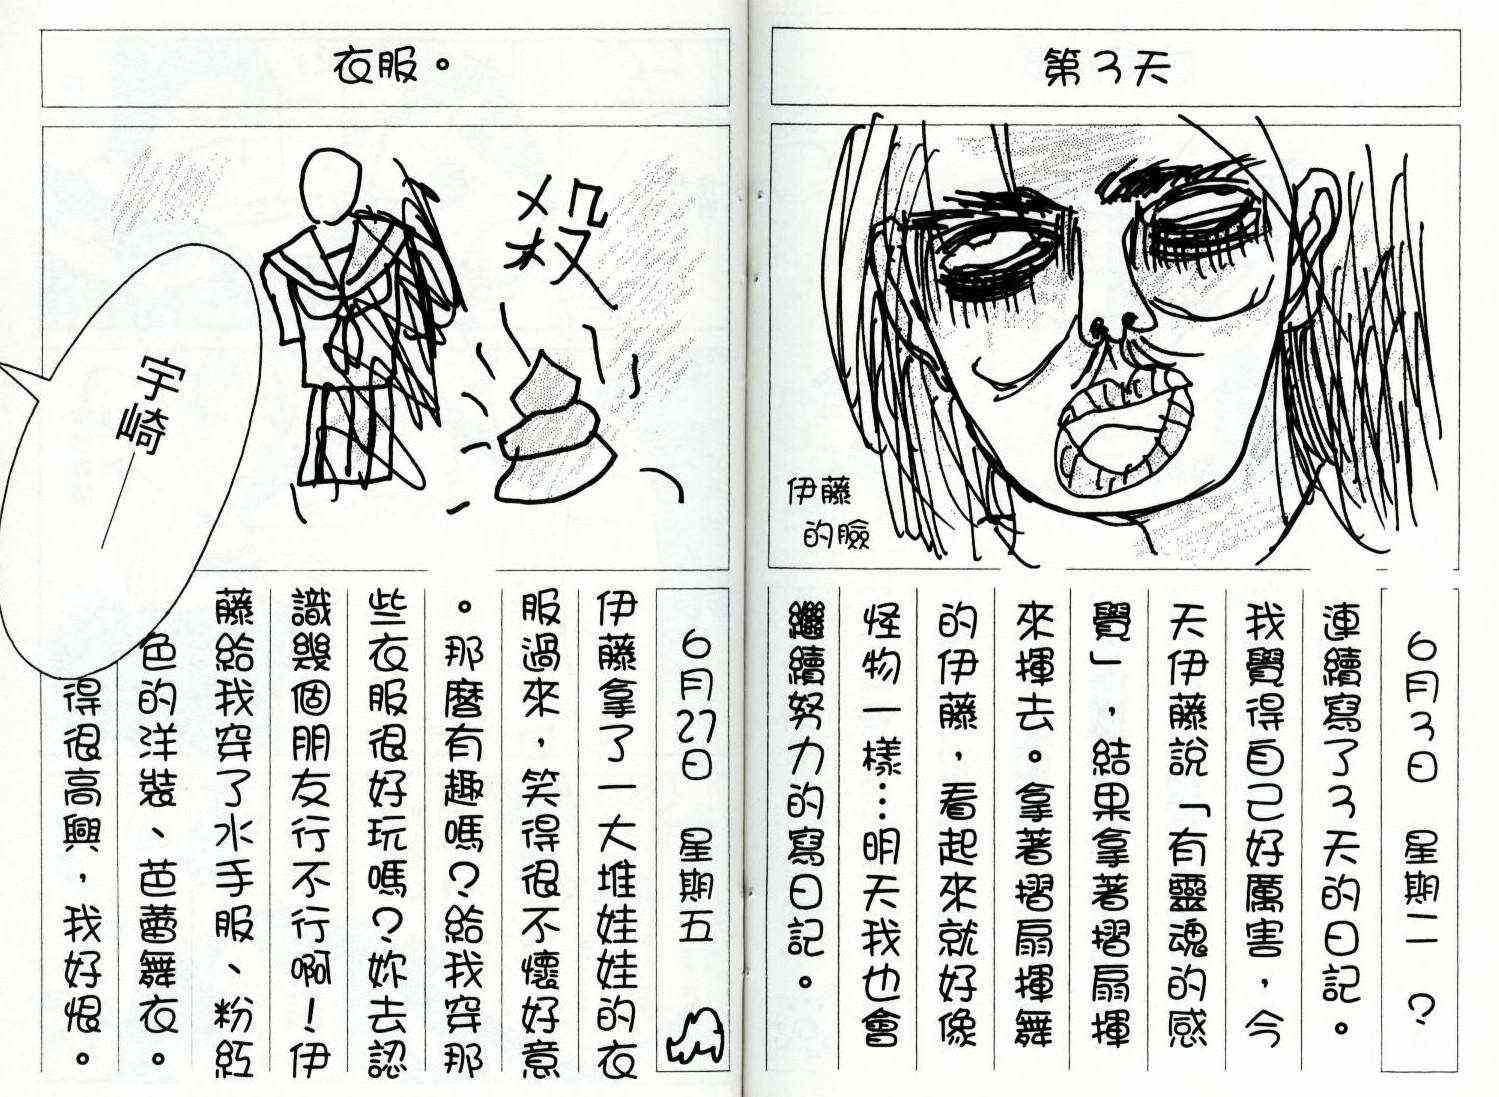 第3天
伊藤
的臉
6月3日 星期二 ?
連續寫了3天的日記。
我覺得自己好厲害,今
天伊藤說「有靈魂的感
覺」,結果拿著摺扇揮
來揮去。拿著摺扇揮舞
的伊藤,看起來就好像
怪物一樣…明天我也會
繼續努力的寫日記。
衣服。
殺
宇崎—
6月27日 星期五
伊藤拿了一大堆娃娃的衣
服過來,笑得很不懷好意
。那麼有趣嗎?給我穿那
些衣服很好玩嗎?妳去認
識幾個朋友行不行啊!伊
藤給我穿了水手服、粉紅
色的洋裝、芭蕾舞衣。
得很高興,我好恨。